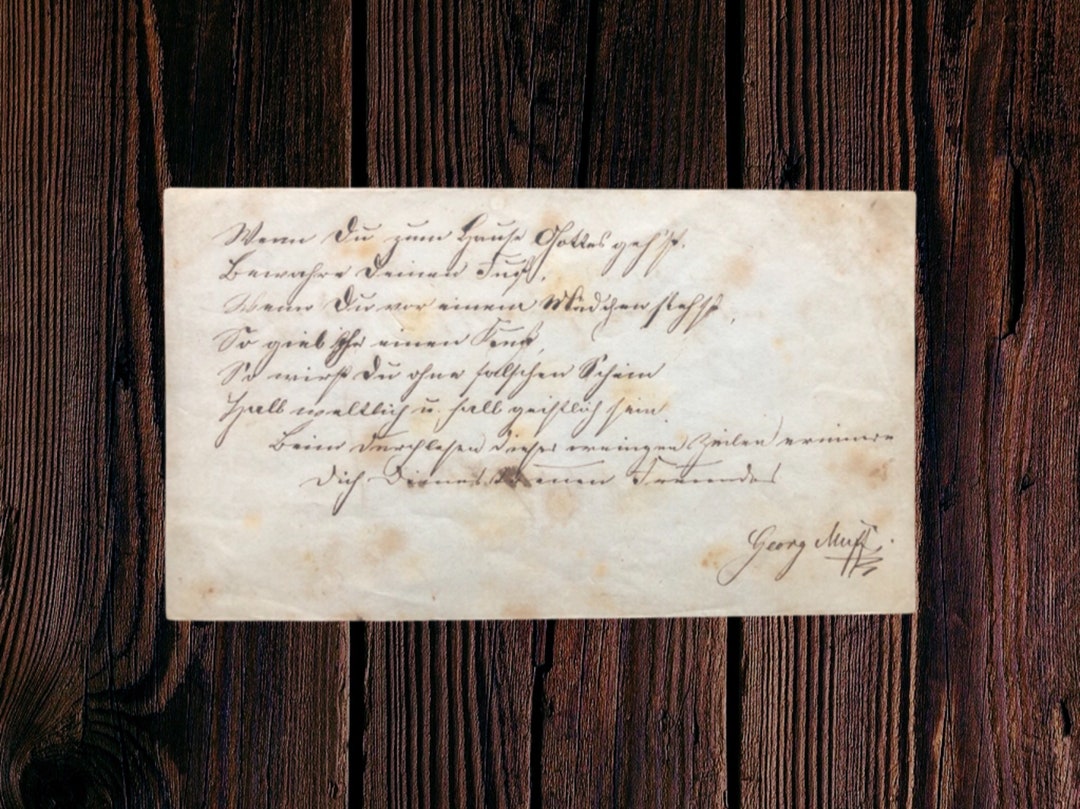 Wenn Du zum Hause Gottes geh'st.
Bewahre Deinen Fuß,
Wenn Du vor einem Mädchen stehst,
So gieb Ihr einen Kuß,
So wirst Du ohne falschen Schein
Halb weltlich u. halb geistlich sein.
Beim Durchlesen dieser wenigen Zeilen erinnere
Dich Deines Freundes
Georg